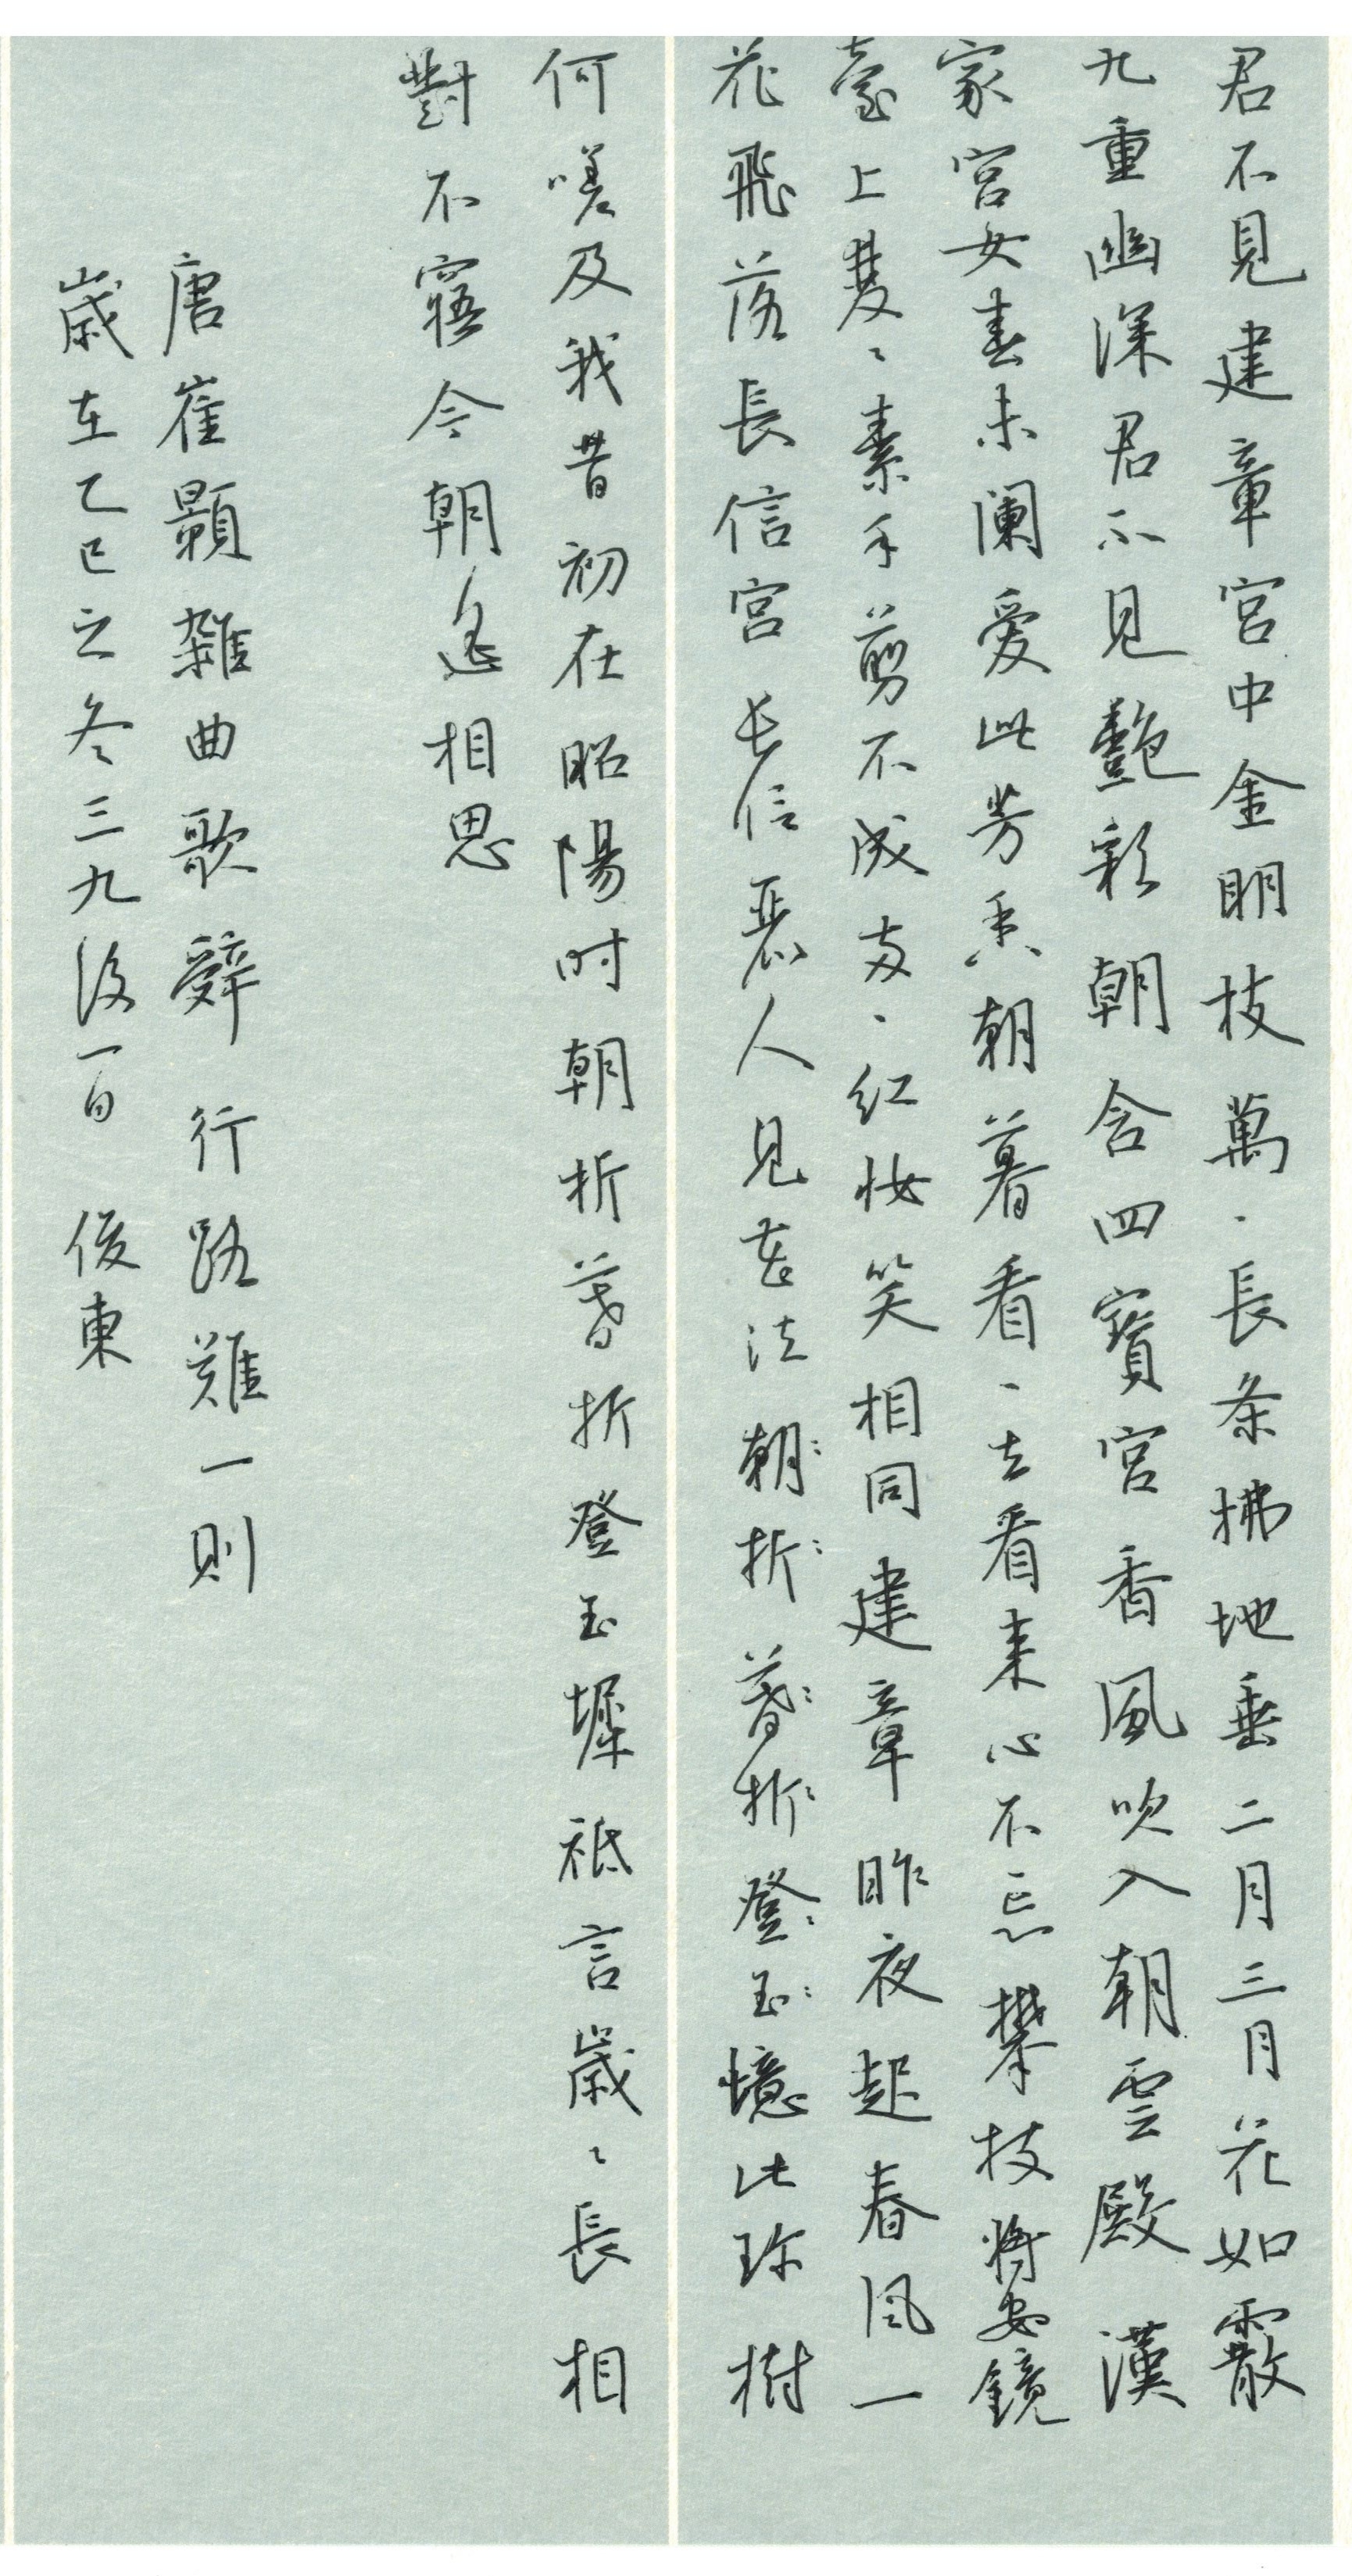 君不見建章宮中金明枝萬、長条拂地垂二月三月花如霰
九重幽深君不見艷彩朝含四寶宮香風吹入朝雲殿漢
家宮女春未闌愛此芳香朝暮看、去看来心不忘攀枝將安鏡
臺上雙〻素手剪不成两、紅妝笑相同建章昨夜起春風一
花飛落長信宮長信麗人見花泣朝〻折〻暮〻折〻登〻玉〻憶此珍樹
何嗟及我昔初在昭陽时朝折暮折登玉墀祗言歲〻長相
對不寤今朝遙相思
唐崔顥雜曲歌辭行路難一則
歲在乙巳之冬三九後一日 俊東